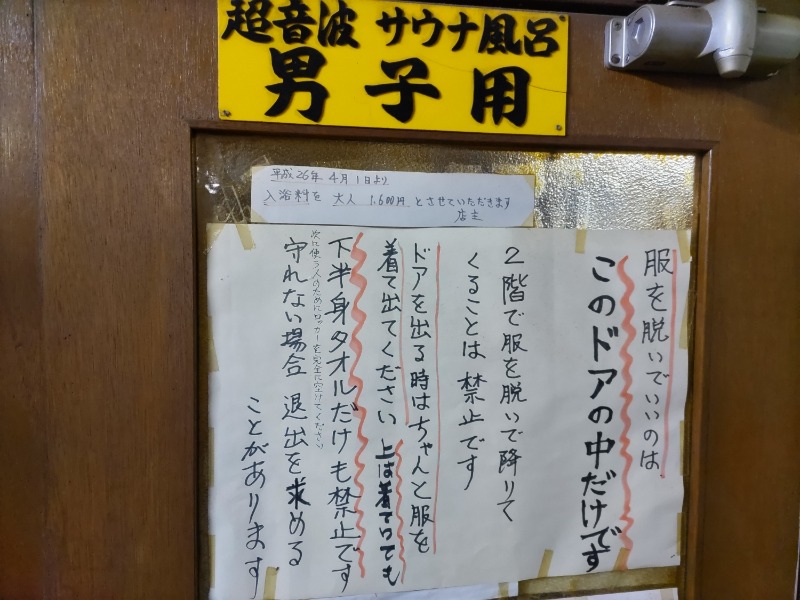 超音波 サウナ風呂
男子用
平成26年4月1日より
入浴料を 大人 1,600円 とさせていただきます
店主
服を脱いでいいのは
このドアの中だけです
2階で服を脱いで降りて
くることは 禁止です
ドアを出る時はちゃんと服を
着て出てください 上は着ていても
下半身タオルだけも禁止です
次に使う人のためにロッカーを完全に空けてください
守れない場合 退出を求める
ことがあります